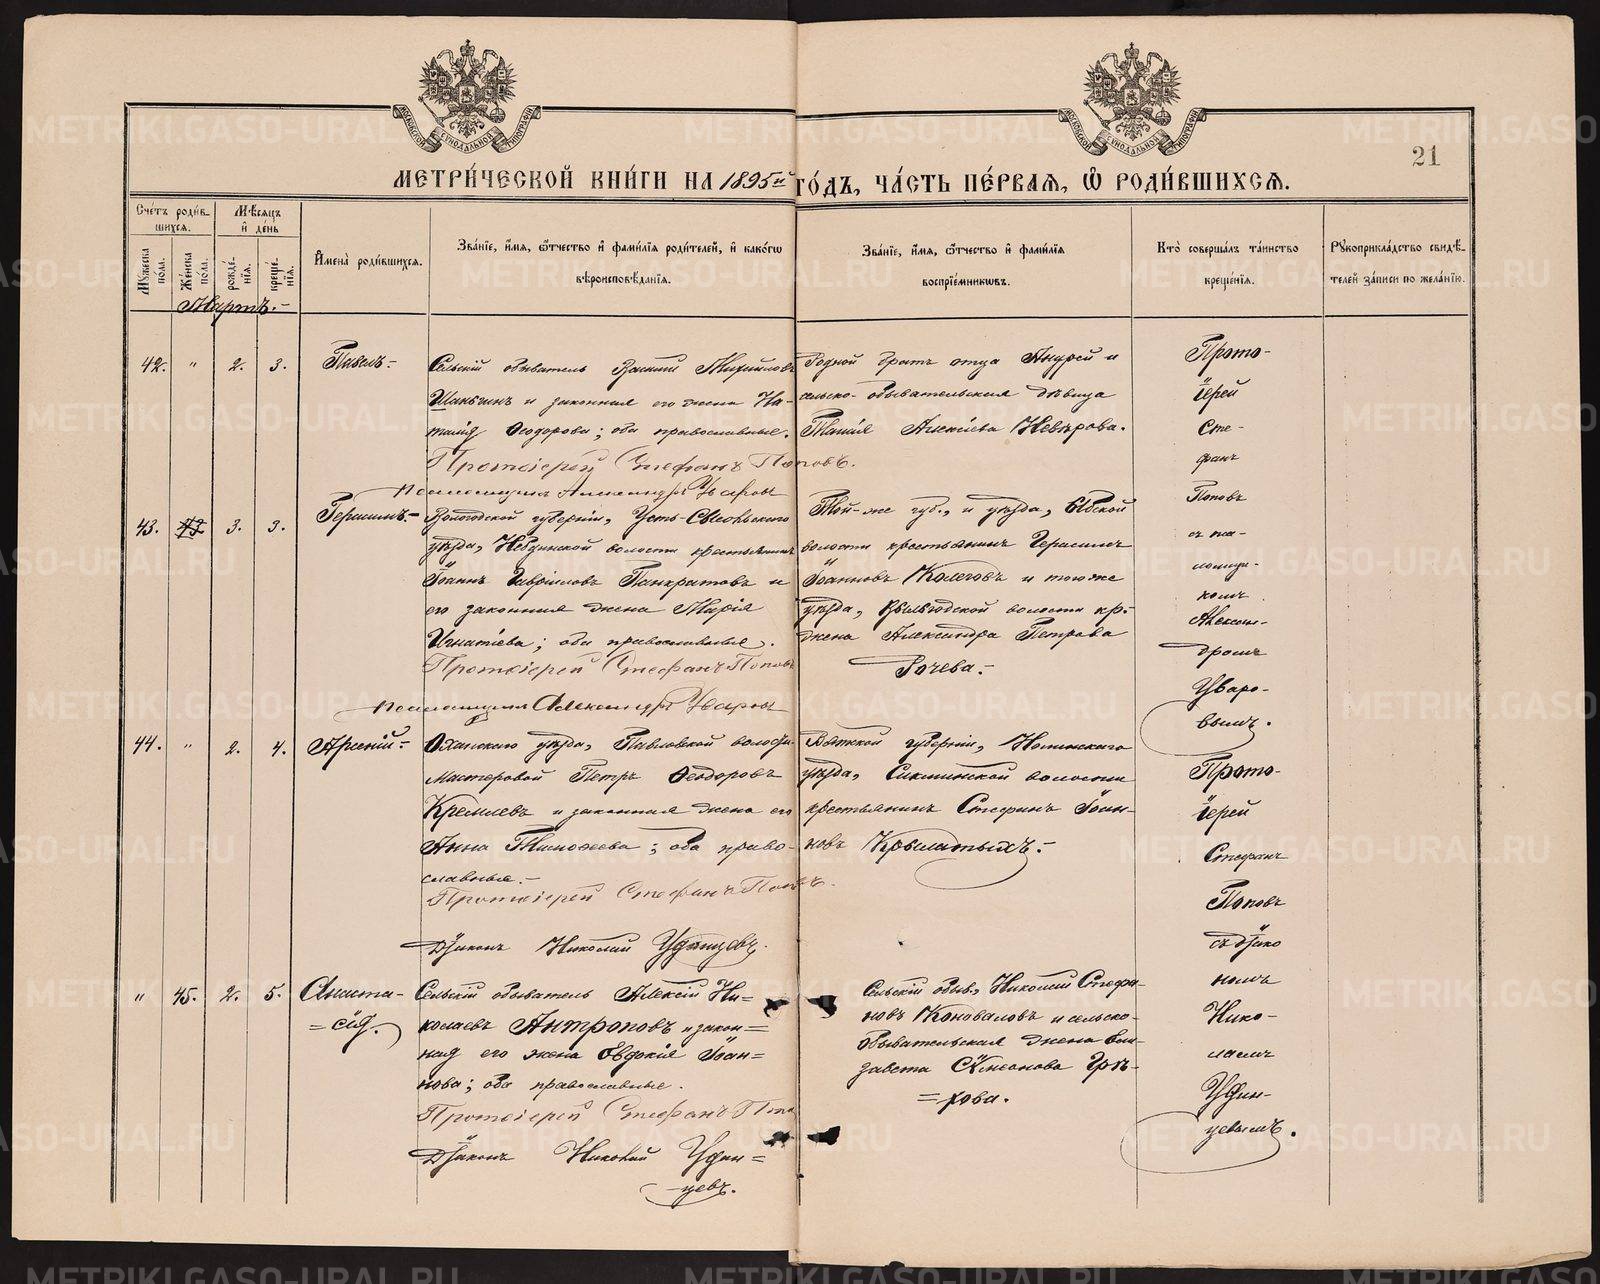 МЕТРИ́ЧЕСКОЙ КНИ́ГИ НА 1895й ГО́ДЪ, ЧА́СТЬ ПЕ́РВАЯ, Ѽ РОДИ́ВШИХСЯ.
21
Сче́тъ роди́в-
шихся.
Мѣ́сяцъ
и҆ де́нь
Му́жеска по́ла.
Же́нска по́ла.
рожде́-
нїѧ.
креще́-
нїѧ.
И҆мена̀ роди́вшихся.
Зва́нїе, и҆́мя, ѻ҆́тчество и҆ фами́лїя роди́телей, и҆ како́гѡ
вѣроисповѣ́данїя.
Зва́нїе, и҆́мя, ѻ҆́тчество и҆ фами́лїя
воспрїе́мникѡвъ.
Кто̀ соверша́лъ та́инство
креще́нїя.
Рꙋкоприкла́дство свидѣ́-
телей за́писи по жела́нїю.
Мартъ.-
42. " 2. 3. Павелъ.-
Сельскій обыватель Василій Михайловъ
Шаньгинъ и законная его жена На-
талія Ѳеодорова; оба православные.
Протоіерей Стефанъ Поповъ.
Псаломщикъ Александръ Уваровъ
Родной братъ отца Андрей и
сельско-обывательская дѣвица
Алексіева Невѣрова.
Прото-
іерей
Сте-
фанъ
Поповъ
съ пса-
ломщи-
комъ
Алексан-
дромъ
Уваро-
вымъ.
43. 43 3. 3. Герасимъ.-
Вологодской губерніи, Усть-Сысольскаго
уѣзда, волости крестьянинъ
Іоаннъ Гавріиловъ Панкратовъ и
его законная жена Марія
Игнатіева; оба православные.
Протоіерей Стефанъ Поповъ
Псаломщикъ Александръ Уваровъ
Той-же губ., и уѣзда, Ыбской
волости крестьянинъ Герасимъ
Іоанновъ Колеговъ и тогоже
уѣзда, Выльгодской волости кр.
жена Александра Петрова
Гочева.-
44. " 2. 4. Арсеній.-
Оханскаго уѣзда, Павловской волости
мастеровой Петръ Ѳеодоровъ
Кремлевъ и законная жена его
Анна Тимоѳеева; оба право-
славные.-
Протоіерей Стефанъ Поповъ.
Діаконъ Николай Удинцовъ.
Вятской губерніи, Нолинскаго
уѣзда, волости
крестьянинъ Стефанъ Іоан-
новъ Крылатыхъ.-
Прото-
іерей
Стефанъ
Поповъ
съ діако
номъ
Нико-
лаемъ
Удин-
цевымъ.
" 45. 2. 5. Анаста-
=сія.
Сельскій обыватель Алексій Ни=
колаевъ Антроповъ и закон=
ная его жена Евдокія Іоан=
нова; оба православные.
Протоіерей Стефанъ Попо
Діаконъ Николай Удин=
-цевъ.
Сельскій обыв., Николай Стефа-
новъ Коноваловъ и сельско-
обывательская жена Ели-
завета